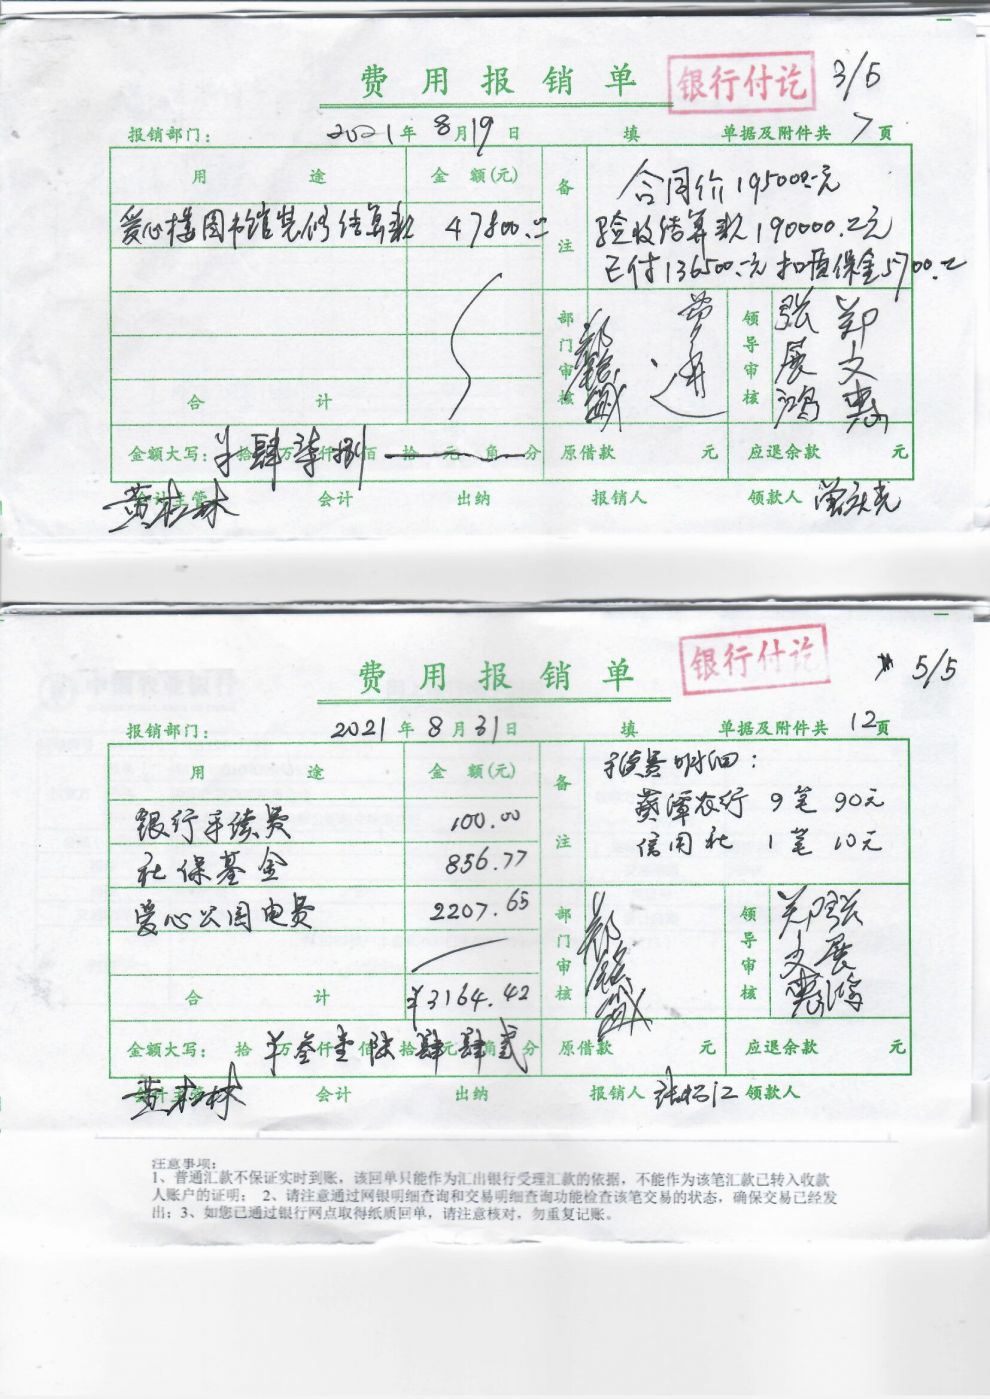 费用报销单
银行付讫
3/5
报销部门： 2021年8月19日 填 单据及附件共7页
用途 金额(元) 备注
合同价195000.00元
爱心楼图书馆装修结算款 47800.00
验收结算款190000.00元
已付136500.00元扣质保金5700.00
部门审核
领导审核 张展鸿 郑文惠
合计
金额大写： 肆拾柒万仟捌佰拾元角分 原借款 元 应退余款 元
会计主管 黄松林 会计 出纳 报销人 领款人
费用报销单
银行付讫
5/5
报销部门： 2021年8月31日 填 单据及附件共12页
用途 金额(元) 备注
手续费明细：
银行手续费 100.00
葵潭农行 9笔 90元
社保基金 856.77
信用社 1笔 10元
爱心公园电费 2207.65
部门审核
领导审核 郑文惠 张展鸿
合计 ¥3164.42
金额大写： 拾万叁仟壹佰陆拾肆元肆角贰分 原借款 元 应退余款 元
会计主管 黄松林 会计 出纳 报销人 领款人
注意事项：
1、普通汇款不保证实时到账，该回单只能作为汇出银行受理汇款的依据，不能作为该笔汇款已转入收款
人账户的证明； 2、请注意通过网银明细查询和交易明细查询功能检查该笔交易的状态，确保交易已经发
出；3、如您已通过银行网点取得纸质回单，请注意核对，勿重复记账。